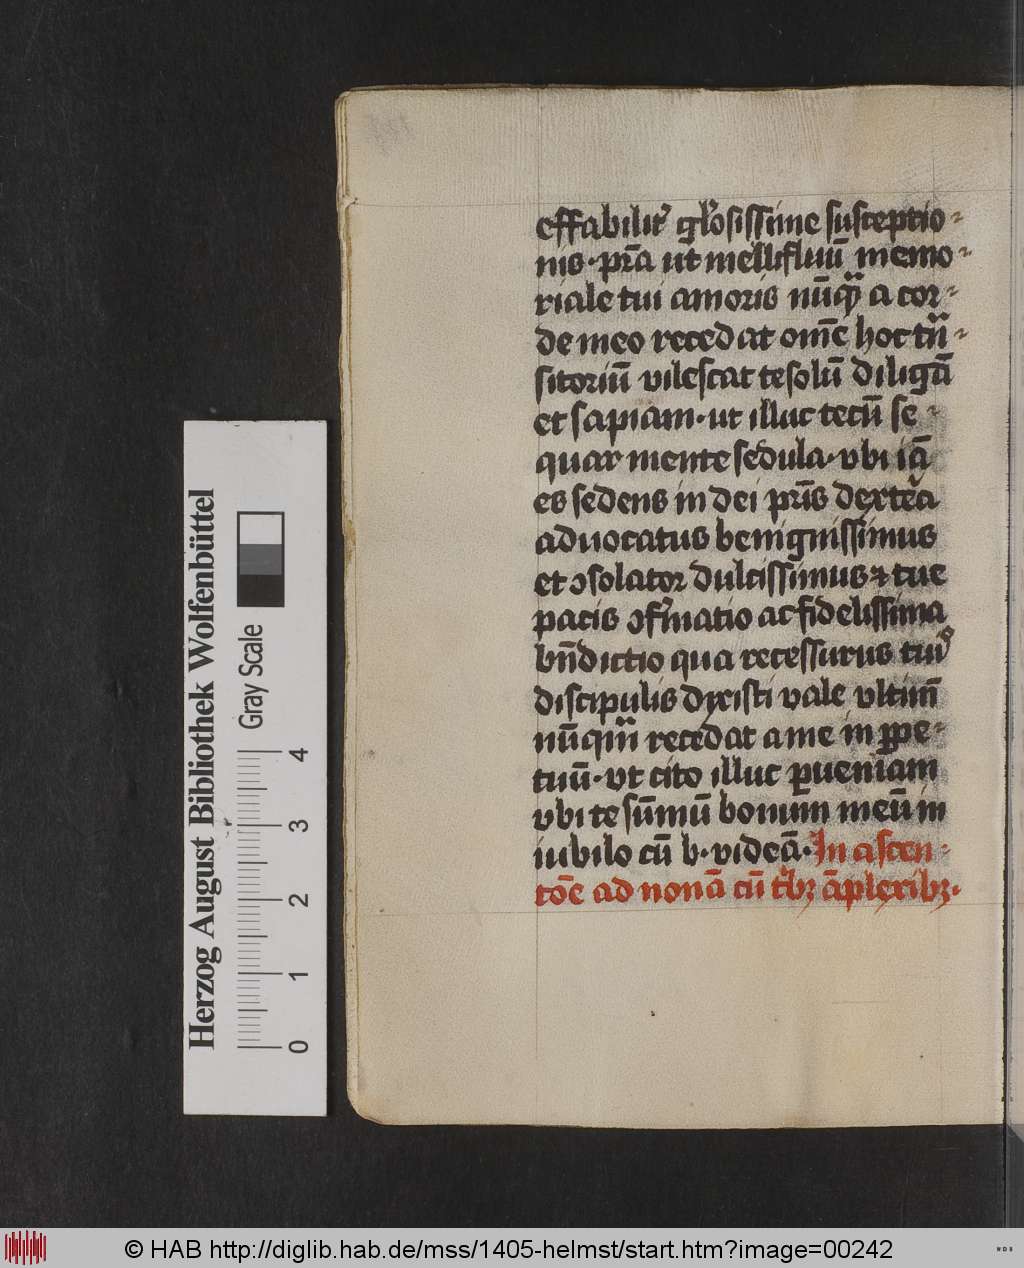 effabilit᷑ gl̉osissime susceptio⸗
nis · pr̄a ut mellifluū memo⸗
riale tui amoris nūqᷓ a cor⸗
de meo recedat om̄e hoc tnᷓ⸗
sitoriū vilescat te solū diligā
et sapiam · ut illuc tecū se⸗
quar mente sedula · vbi iā
es sedens in dei pr̄is dextera
aduocatus benignissimus
et ↄsolator dulcissimus ⁊ tue
pacis ↄfirmatio ac fidelissima
bn̄dictio qua recessurus tuiꝰ
discipulis dyristi vale vltim̄
nūqᷓ recedat a me in ꝑpe⸗
tuū · vt cito illuc ꝑueniam
vbi te sūmū bonum meū in
iubilo cū b · videā · In ascen⸗
cōe ad nonā cū tͥbꝫ āplexibꝫ ·
Herzog August Bibliothek Wolfenbüttel
Gray Scale
0 1 2 3 4
© HAB http://diglib.hab.de/mss/1405-helmst/start.htm?image=00242